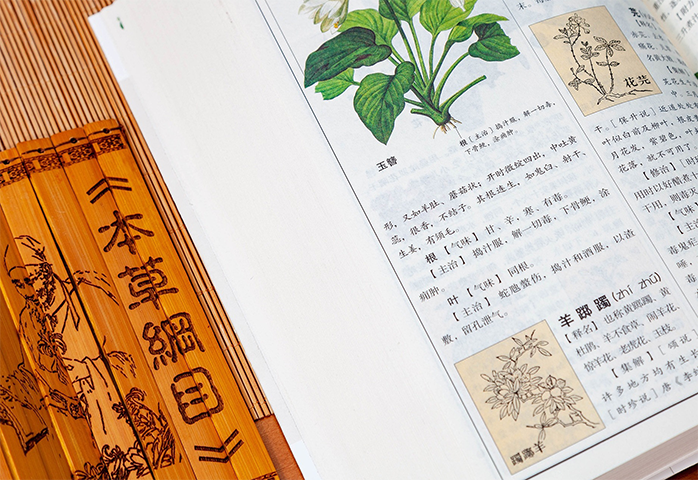 《本草綱目》
玉簪
根〔主治〕捣汁服，解一切毒、
下骨鲠，涂痈肿。
形，又如羊肚、蘑菇状；开时微绽四出，中吐黄
蕊，很香，不结子。其根连生，如鬼臼、射干、
生姜，有须毛。
根【气味】甘、辛、寒，有毒。
【主治】捣汁服，解一切毒，下骨鲠，涂
痈肿。
叶【气味】同根。
【主治】蛇虺螫伤，捣汁和酒服，以渣
敷，留孔泄气。
羊踯躅(zhí zhú)
【释名】也称黄踯躅、黄
杜鹃、羊不食草、闹羊花、
惊羊花、老虎花、玉枝
【集解】〔颂说
许多地方均有生
〔时珍说〕唐《李绅
躅躑羊
花芫
干。〔保昇说〕
叶似白前及柳叶，根皮
月花发，紫碧色，
花落，就不可用
【修治】
用时以好醋煮
干用，则毒
【气味